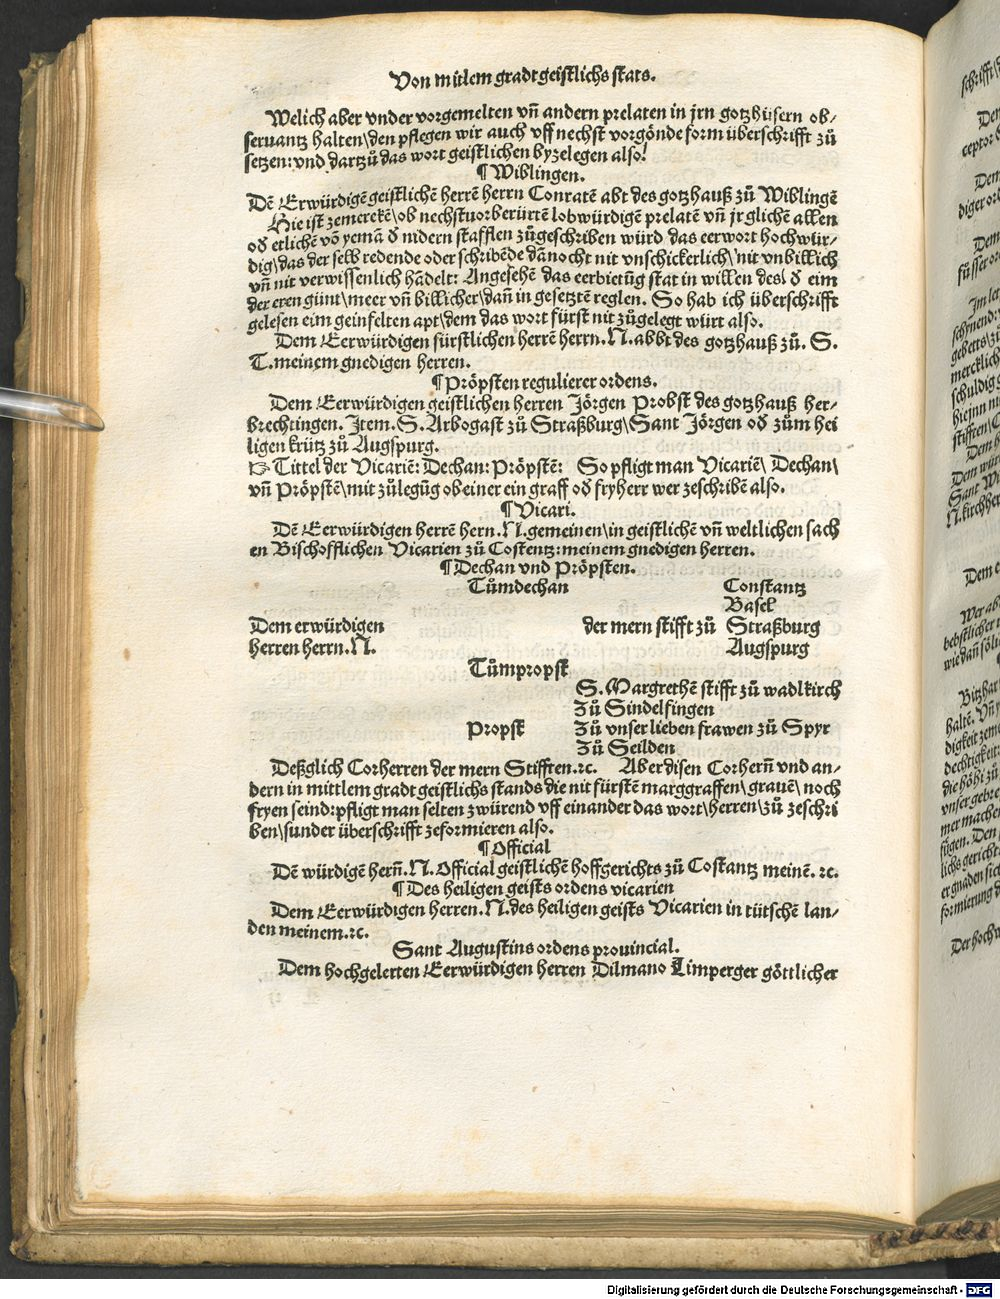 Von mitlem gradt geistlichs stats.
Welich aber vnder vorgemelten vñ andern prelaten in jrn gotzhüsern ob⸗
seruantz halten\den pflegen wir auch vff nechst vorgönde form überschrifft zů
setzen:vnd dartzů das wort geistlichen byzelegen also!
¶ Wiblingen.
Dē Erwürdigē geistlichē herrē herrn Conratē abt des gotzhauß zů Wiblingē
Hie ist zemerckē\ob nechstuorberürtē lobwürdigē prelatē vñ jr glichē allen
od̄ etlichē võ yemã d̄ nidern stafflen zůgeschriben würd das eerwort hochwür⸗
dig\das der selb redende oder schribēde dãnocht nit vnschickerlich\nit vnbillich
vñ nit verwissenlich hãdelt: Angesehē das eerbietūg stat in willen des\ d̄ eim
der eren günt\meer vñ billicher\dañ in gesetztē reglen. So hab ich überschrifft
gelesen eim geinfelten apt\dem das wort fürst nit zůgelegt würt also.
Dem Eerwürdigen fürstlichen herrē herrn.N.abbt des gotzhauß zů. S.
T.meinem gnedigen herren.
¶ Pröpsten regulierer ordens.
Dem Eerwürdigen geistlichen herren Jörgen Probst des gotzhauß her⸗
brechtingen. Item.S.Arbogast zů Straßburg\Sant Jörgen od̄ zům hei
ligen krütz zů Augspurg.
☞ Tittel der Vicariē: Dechan: Pröpstē: So pfligt man Vicariē\ Dechan\
vñ Pröpstē\mit zůlegūg ob einer ein graff od̄ fryherr wer zeschribē also.
¶ Vicari.
Dē Eerwürdigen herrē hern.N.gemeinen\in geistlichē vñ weltlichen sach
en Bischofflichen Vicarien zů Costentz:meinem gnedigen herren.
¶ Dechan vnd Pröpsten.
Tůmdechan Constantz
Basel
Dem erwürdigen der mern stifft zů Straßburg
herren herrn.N. Augspurg
Tůmpropst
S.Margrethē stifft zů wadlkirch
Zů Sindelfingen
Propst Zů vnser lieben frawen zů Spyr
Zů Seilden
Deßglich Corherren der mern Stifften.ꝛc. Aber disen Corherñ vnd an⸗
dern in mittlem gradt geistlichs stands die nit fürstē marggraffen\grauē\noch
fryen seind:pfligt man selten zwürend vff einander das wort\herren\zů zeschri
ben\sunder überschrifft zeformieren also.
¶ Official
Dē würdigē herñ.N.Official geistlichē hoffgerichts zů Costantz meinē.ꝛc.
¶ Des heiligen geists ordens vicarien
Dem Eerwürdigen herren.N.des heiligen geists Vicarien in tütschē lan⸗
den meinem.ꝛc.
Sant Augustins ordens prouincial.
Dem hochgelerten Eerwürdigen herren Dilmano Limperger göttlicher
Digitalisierung gefördert durch die Deutsche Forschungsgemeinschaft - DFG